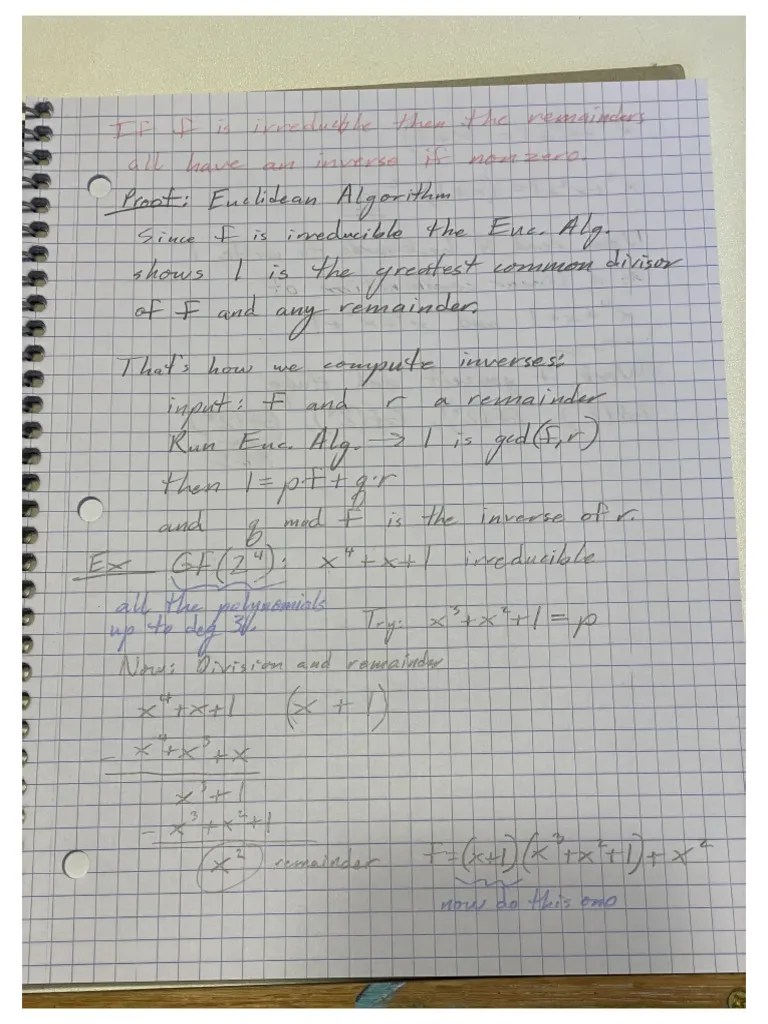 If f is irreducible then the remainders
all have an inverse if nonzero.
Proof: Euclidean Algorithm
Since f is irreducible the Euc. Alg.
shows 1 is the greatest common divisor
of f and any remainder.
That's how we compute inverses:
input: f and r a remainder
Run Euc. Alg. → 1 is gcd(f,r)
then 1 = p·f + q·r
and q mod f is the inverse of r.
Ex GF(2⁴): x⁴+x+1 irreducible
all the polynomials
up to deg 3
Try: x³+x²+1 = p
Now: Division and remainder
x⁴+x+1 (x + 1)
- x⁴+x³+x
x³+1
- x³+x²+1
x² remainder
f=(x+1)(x³+x²+1)+x²
now do this one